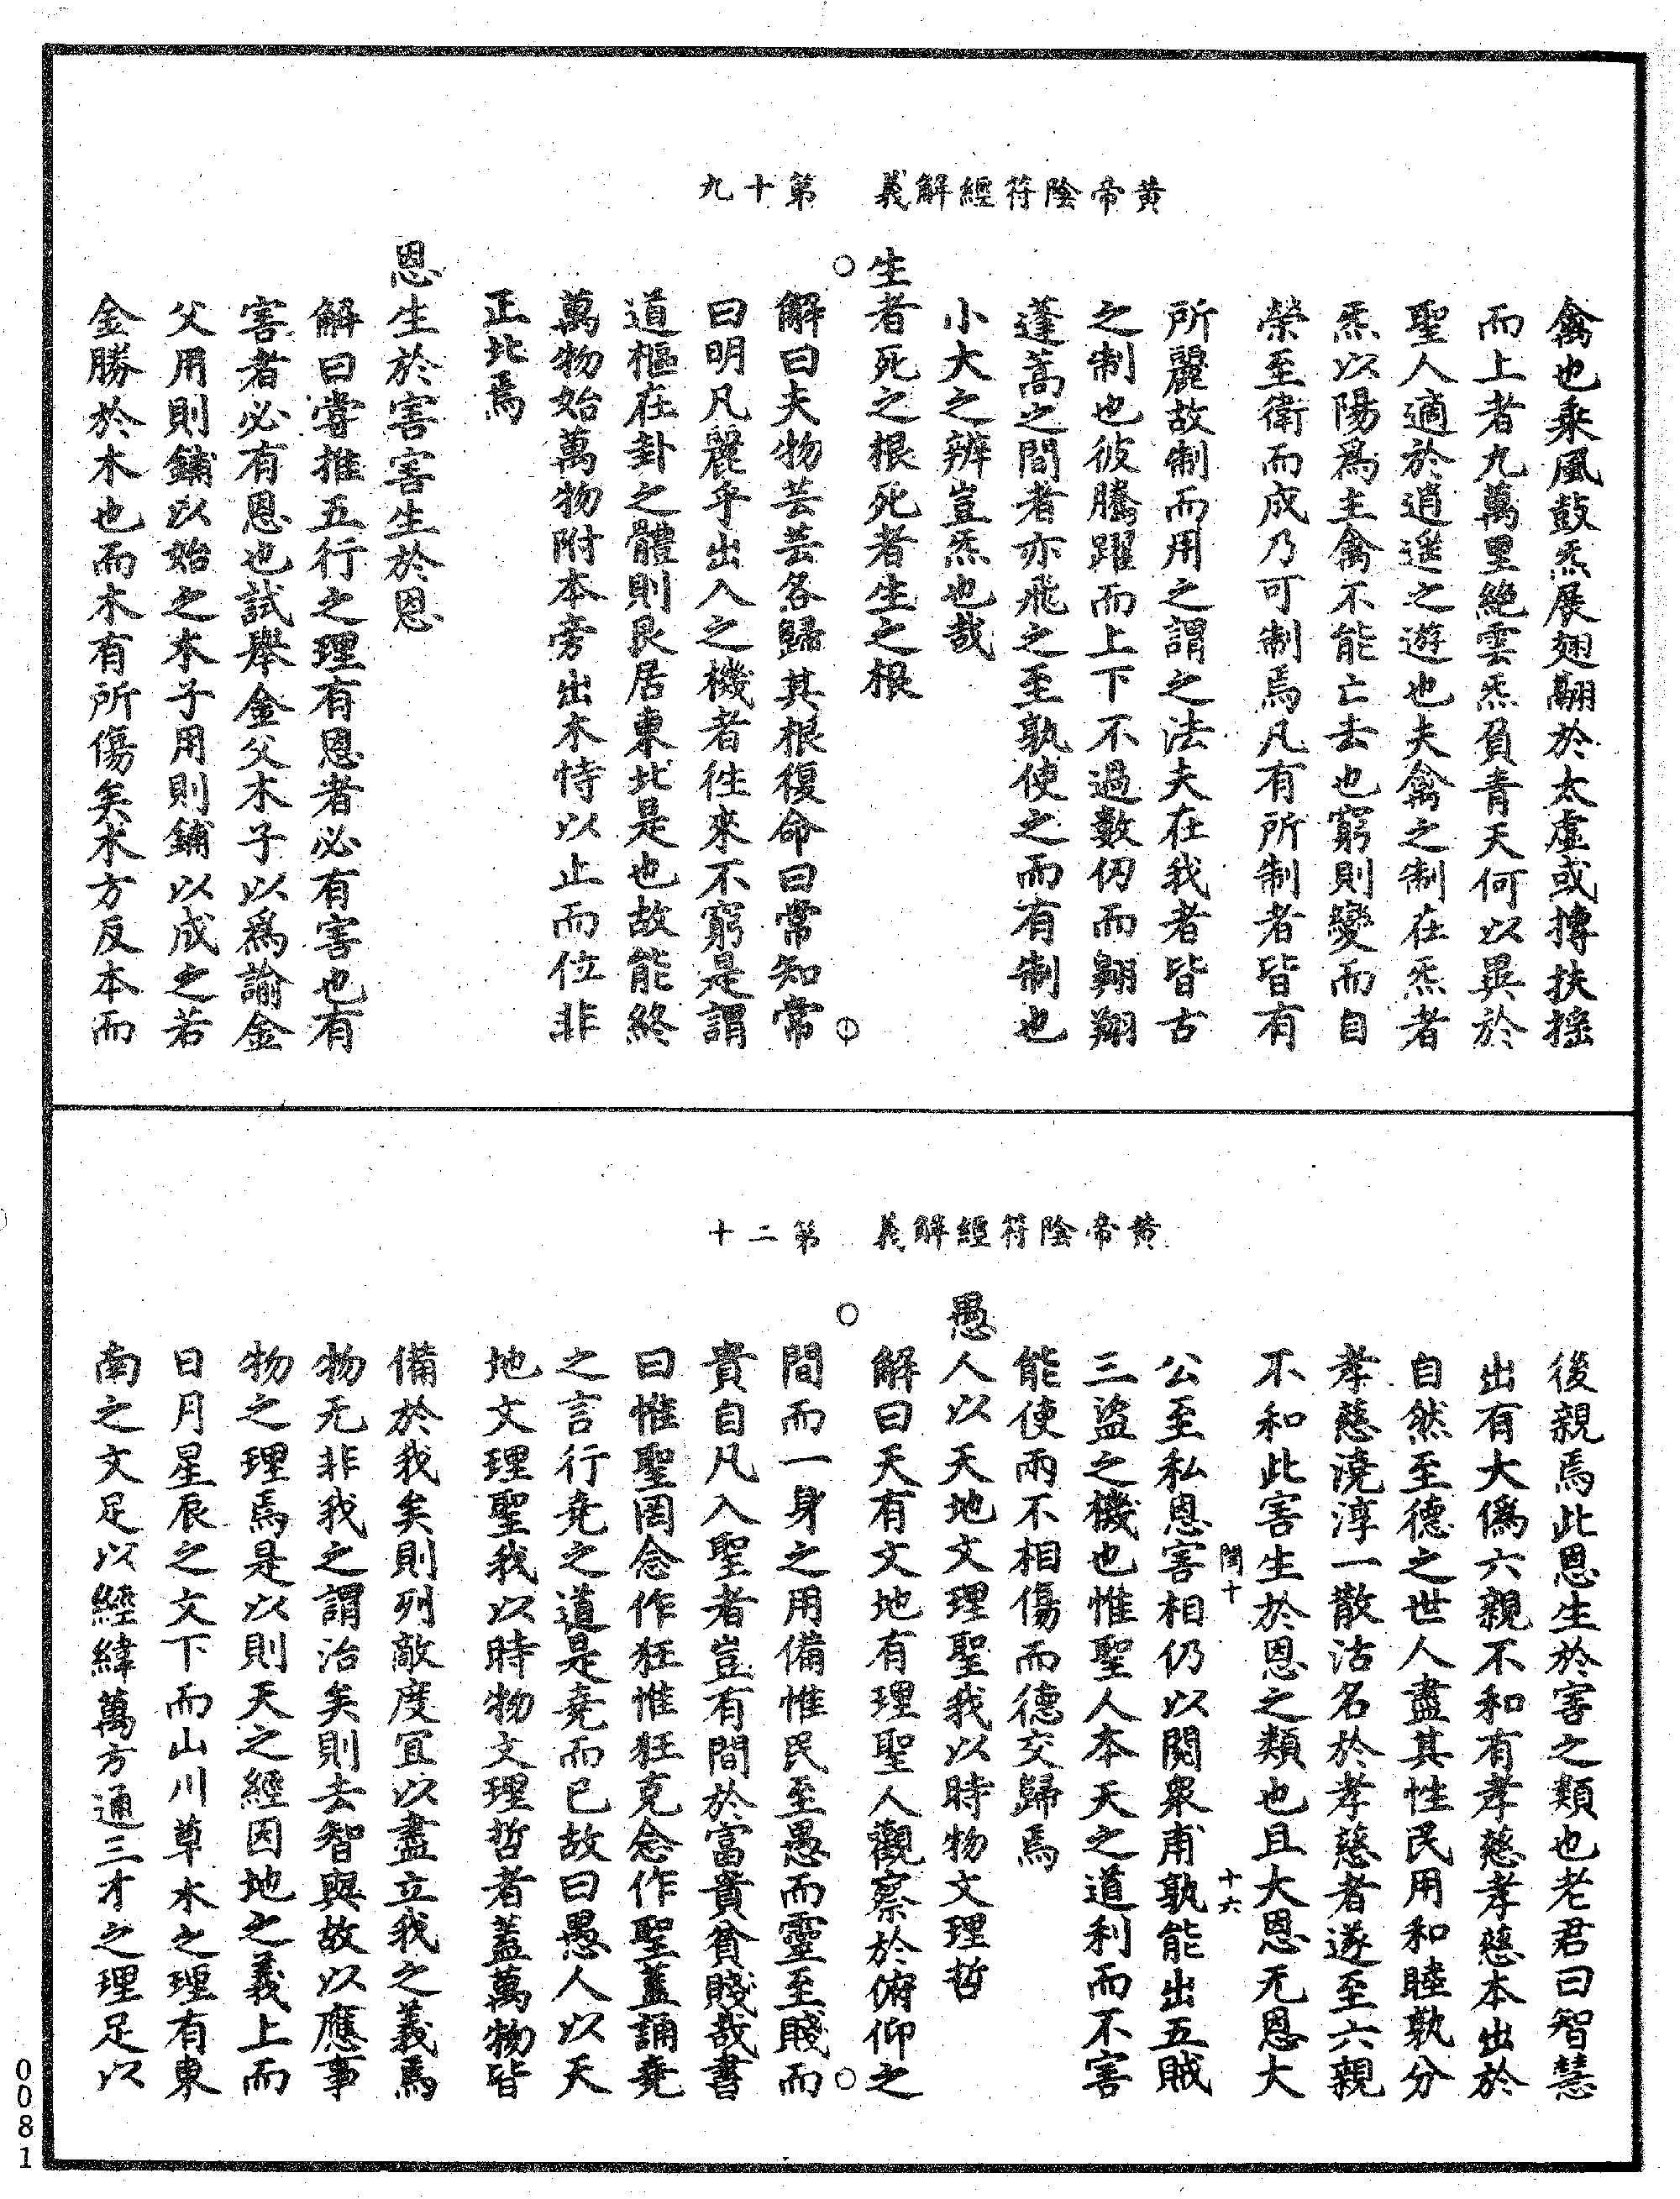 黄帝陰符經解義　第十九
禽也乘風鼓炁展翅翮於太虛或摶扶搖
而上者九萬里絶雲炁負青天何以異於
聖人適於逍遥之遊也夫禽之制在炁者
炁以陽爲主禽不能亡去也窮則變而自
榮至衛而成乃可制焉凡有所制者皆有
所麗故制而用之謂之法夫在我者皆古
之制也彼騰躍而上下不過數仞而翱翔
蓬蒿之間者亦飛之至孰使之而有制也
小大之辨豈炁也哉
生者死之根死者生之根
解曰夫物芸芸各歸其根復命曰常知常
曰明凡麗乎出入之機者徃來不窮是謂
道樞在卦之體則艮居東北是也故能終
萬物始萬物附本旁出木恃以止而位非
正北焉
恩生於害害生於恩
解曰嘗推五行之理有恩者必有害也有
害者必有恩也試舉金父木子以爲諭金
父用則鋪以始之木子用則鋪以成之若
金勝於木也而木有所傷矣木方反本而
黄帝陰符經解義　第二十
後親焉此恩生於害之類也老君曰智慧
出有大僞六親不和有孝慈孝慈本出於
自然至德之世人盡其性民用和睦孰分
孝慈澆淳一散沽名於孝慈者遂至六親
不和此害生於恩之類也且大恩无恩大
閏十　十六
公至私恩害相仍以閱衆甫孰能出五賊
三盜之機也惟聖人本天之道利而不害
能使兩不相傷而德交歸焉
愚人以天地文理聖我以時物文理哲
解曰天有文地有理聖人觀察於俯仰之
間而一身之用備惟民至愚而靈至賤而
貴自凡入聖者豈有間於富貴貧賤哉書
曰惟聖罔念作狂惟狂克念作聖蓋誦堯
之言行堯之道是堯而已故曰愚人以天
地文理聖我以時物文理哲者蓋萬物皆
備於我矣則列敵度宜以盡立我之義焉
物无非我之謂治矣則去智與故以應事
物之理焉是以則天之經因地之義上而
日月星辰之文下而山川草木之理有東
南之文足以經緯萬方通三才之理足以
0081